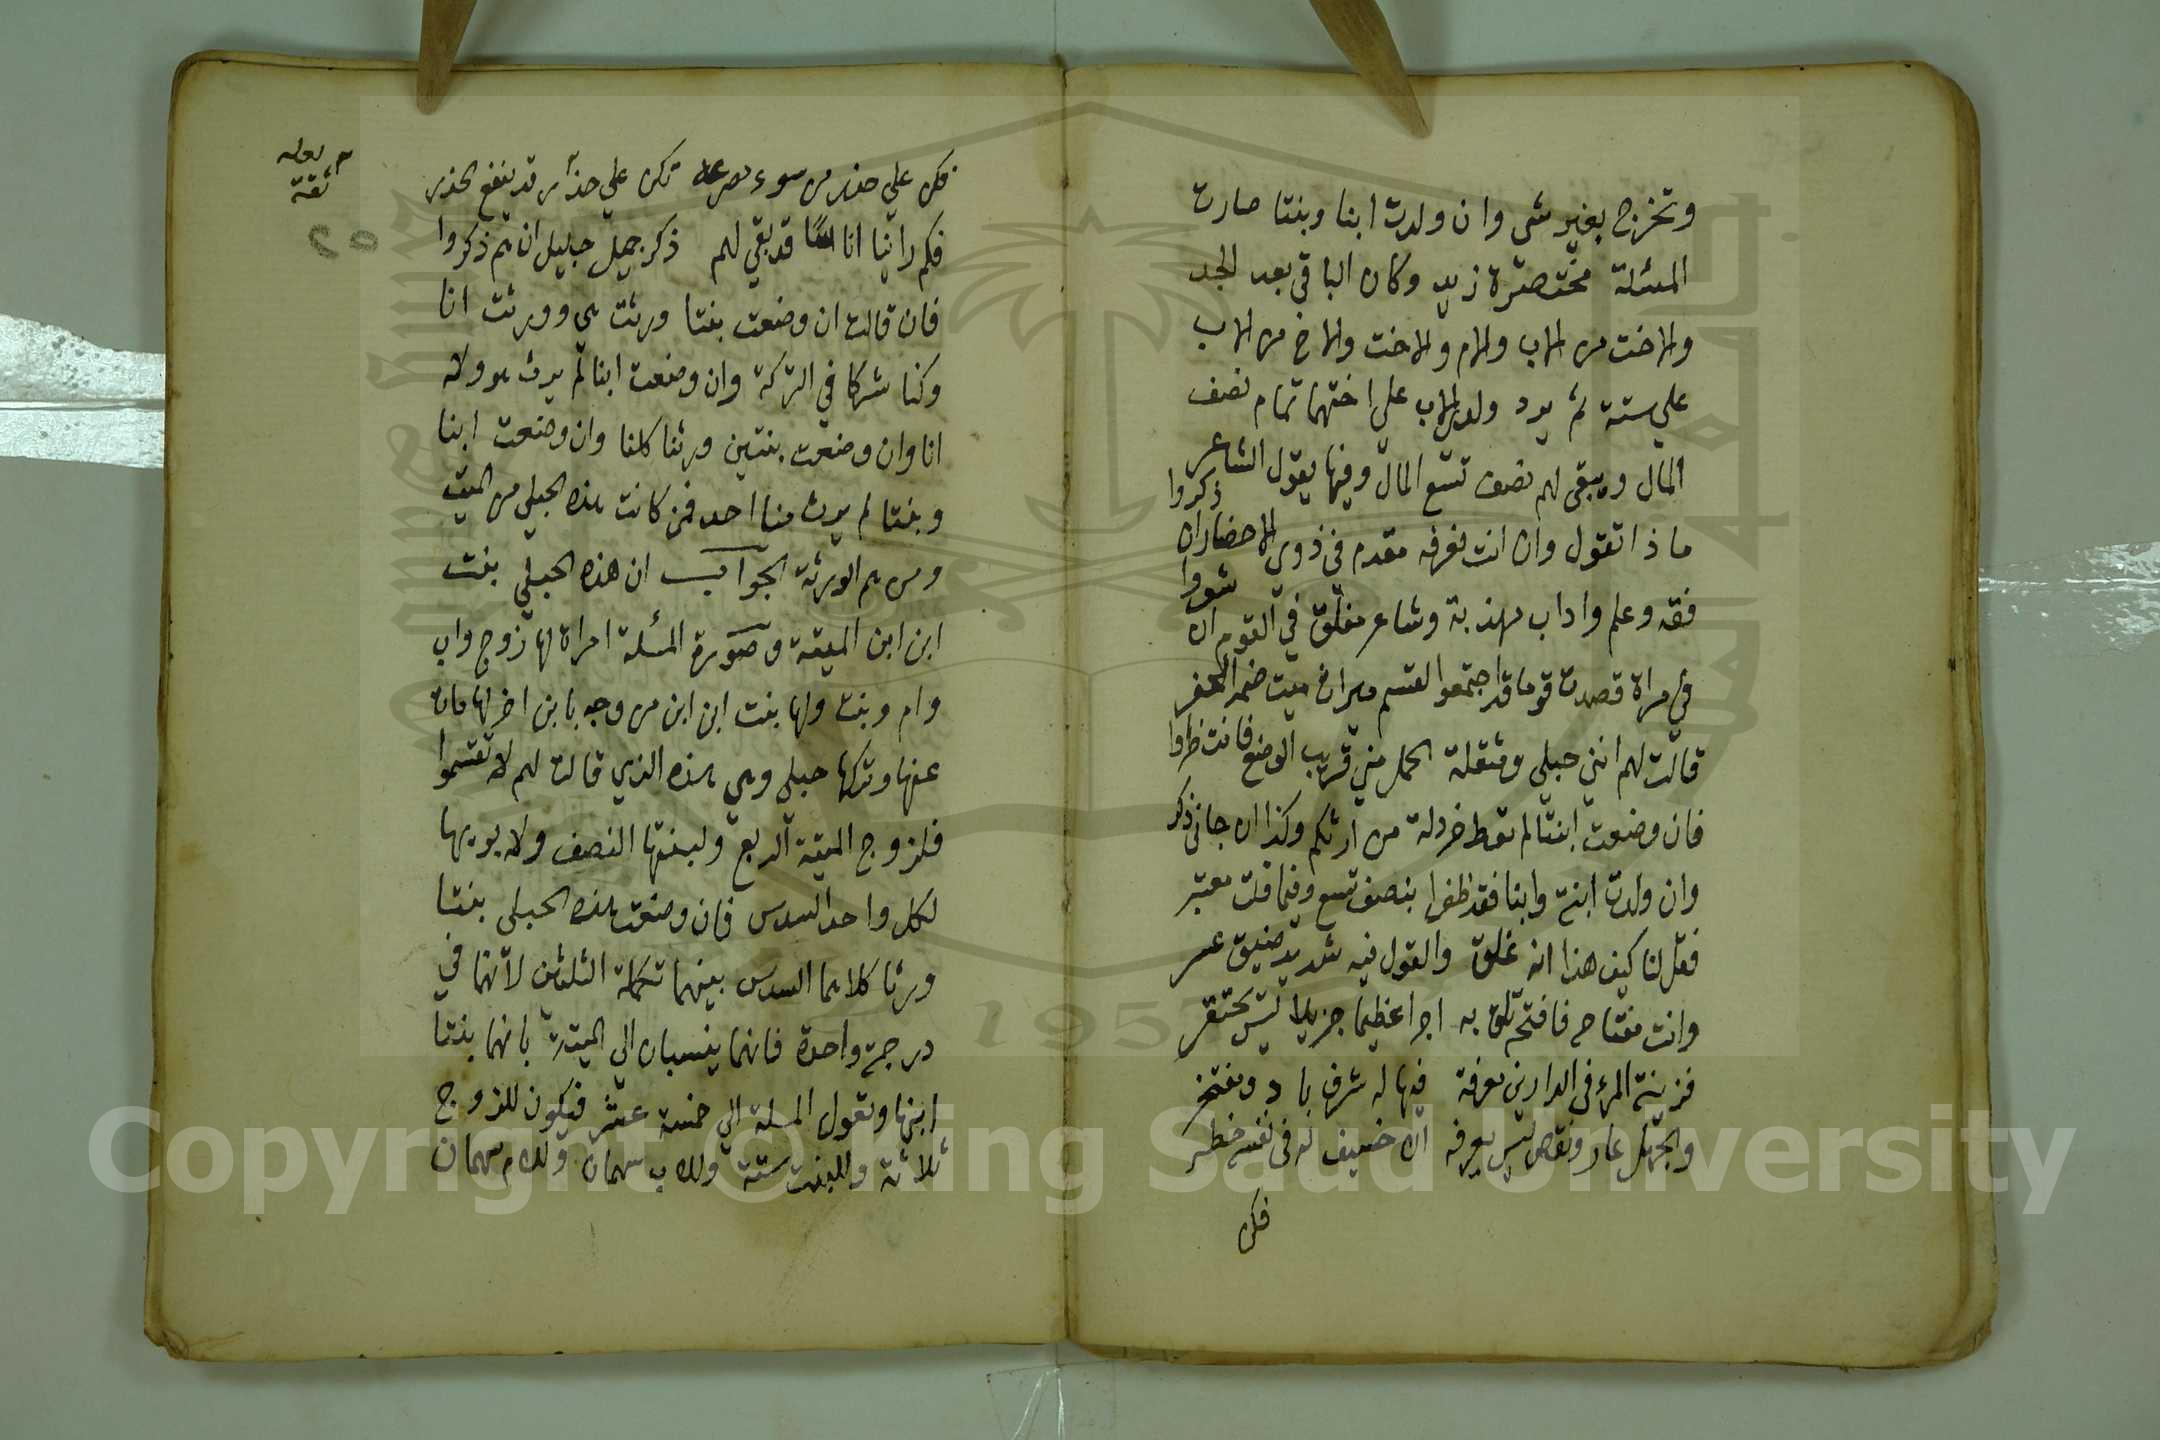 وتخرج بغير شي وان ولدت ابنا وبنتا صارت
المسئلة مختصرة زيد وكان الباقي بعد الجد
والاخت من الاب والام والاخت والاخ من الاب
علي ستة ثم يرد ولد الاب علي اختهما تمام نصف
المال ويبقى لهم نصف تسع المال وفيها يقول الشاعر
ماذا تقول وان انت تعرفه مقدم في ذوي الاحضار ان ذكروا
فقه وعلم واداب مهذبة وشاعر مفلق في القوم ان شعروا
في امراة قصدت قوما قد اجتمعوا لقسم ميراث ميت ضمه الحفر
قالت لهم انني حبلى ومثقلة الحمل مني قريب الوضع فانتظروا
فان وضعت ابنتا لم تعط خردلة من ارثكم وكذا ان جاني ذكر
وان ولدت ابنة وابنا فقد ظفرا بنصف تسع وفيما قلت معتبر
فقل لنا كيف هذا انه غلق والقول فيه شديد ضيق عسر
وانت مفتاحه فافتح تلق به اجرا عظيما جزيلا ليس يحتقر
فزينة المرء في الدارين معرفة فيها له شرف باد ومفتخر
والجهل عار ونقص ليس يعرفه الا خفيف له في نفسه خطر
فكن
فكن علي حذر من سوء تكن علي حذر قد ينفع الحذر
فكم راينا اناسا قد بقي لهم ذكر جميل جليل ان هم ذكروا
فان قالت ان وضعت بنتا ورثت هي وورثت انا
وكنا شركا في التركة وان وضعت ابنا لم يرث هو ولا
انا وان وضعت بنتين ورثنا كلنا وان وضعت ابنا
وبنتا لم يرث منا احد فمن كانت هذه الحبلي من الميت
ومن هم الورثة الجواب ان هذه الحبلي بنت
ابن ابن الميتة وصورة المسئلة امراة لها زوج واب
وام وبنت ولها بنت ابن ابن مزوجه بابن اخر لها مات
عنها وتركها حبلى وهي هذه الذي قالت لهم لا تقتسموا
فلزوج الميتة الربع ولبنتها النصف ولابويها
لكل واحد السدس فان وضعت هذه الحبلى بنتا
ورثا كلاهما السدس بينهما تكملة الثلثين لانهما في
درجة واحدة فانهما ينسبان الي الميتة بانهما بنتا
ابنها وتعول المسلة الي خمسة عشر فيكون للزوج
ثلاثة وللبنت ستة وللاب سهمان وللام سهمان
ثقة
1957
Copyright © King Saud University